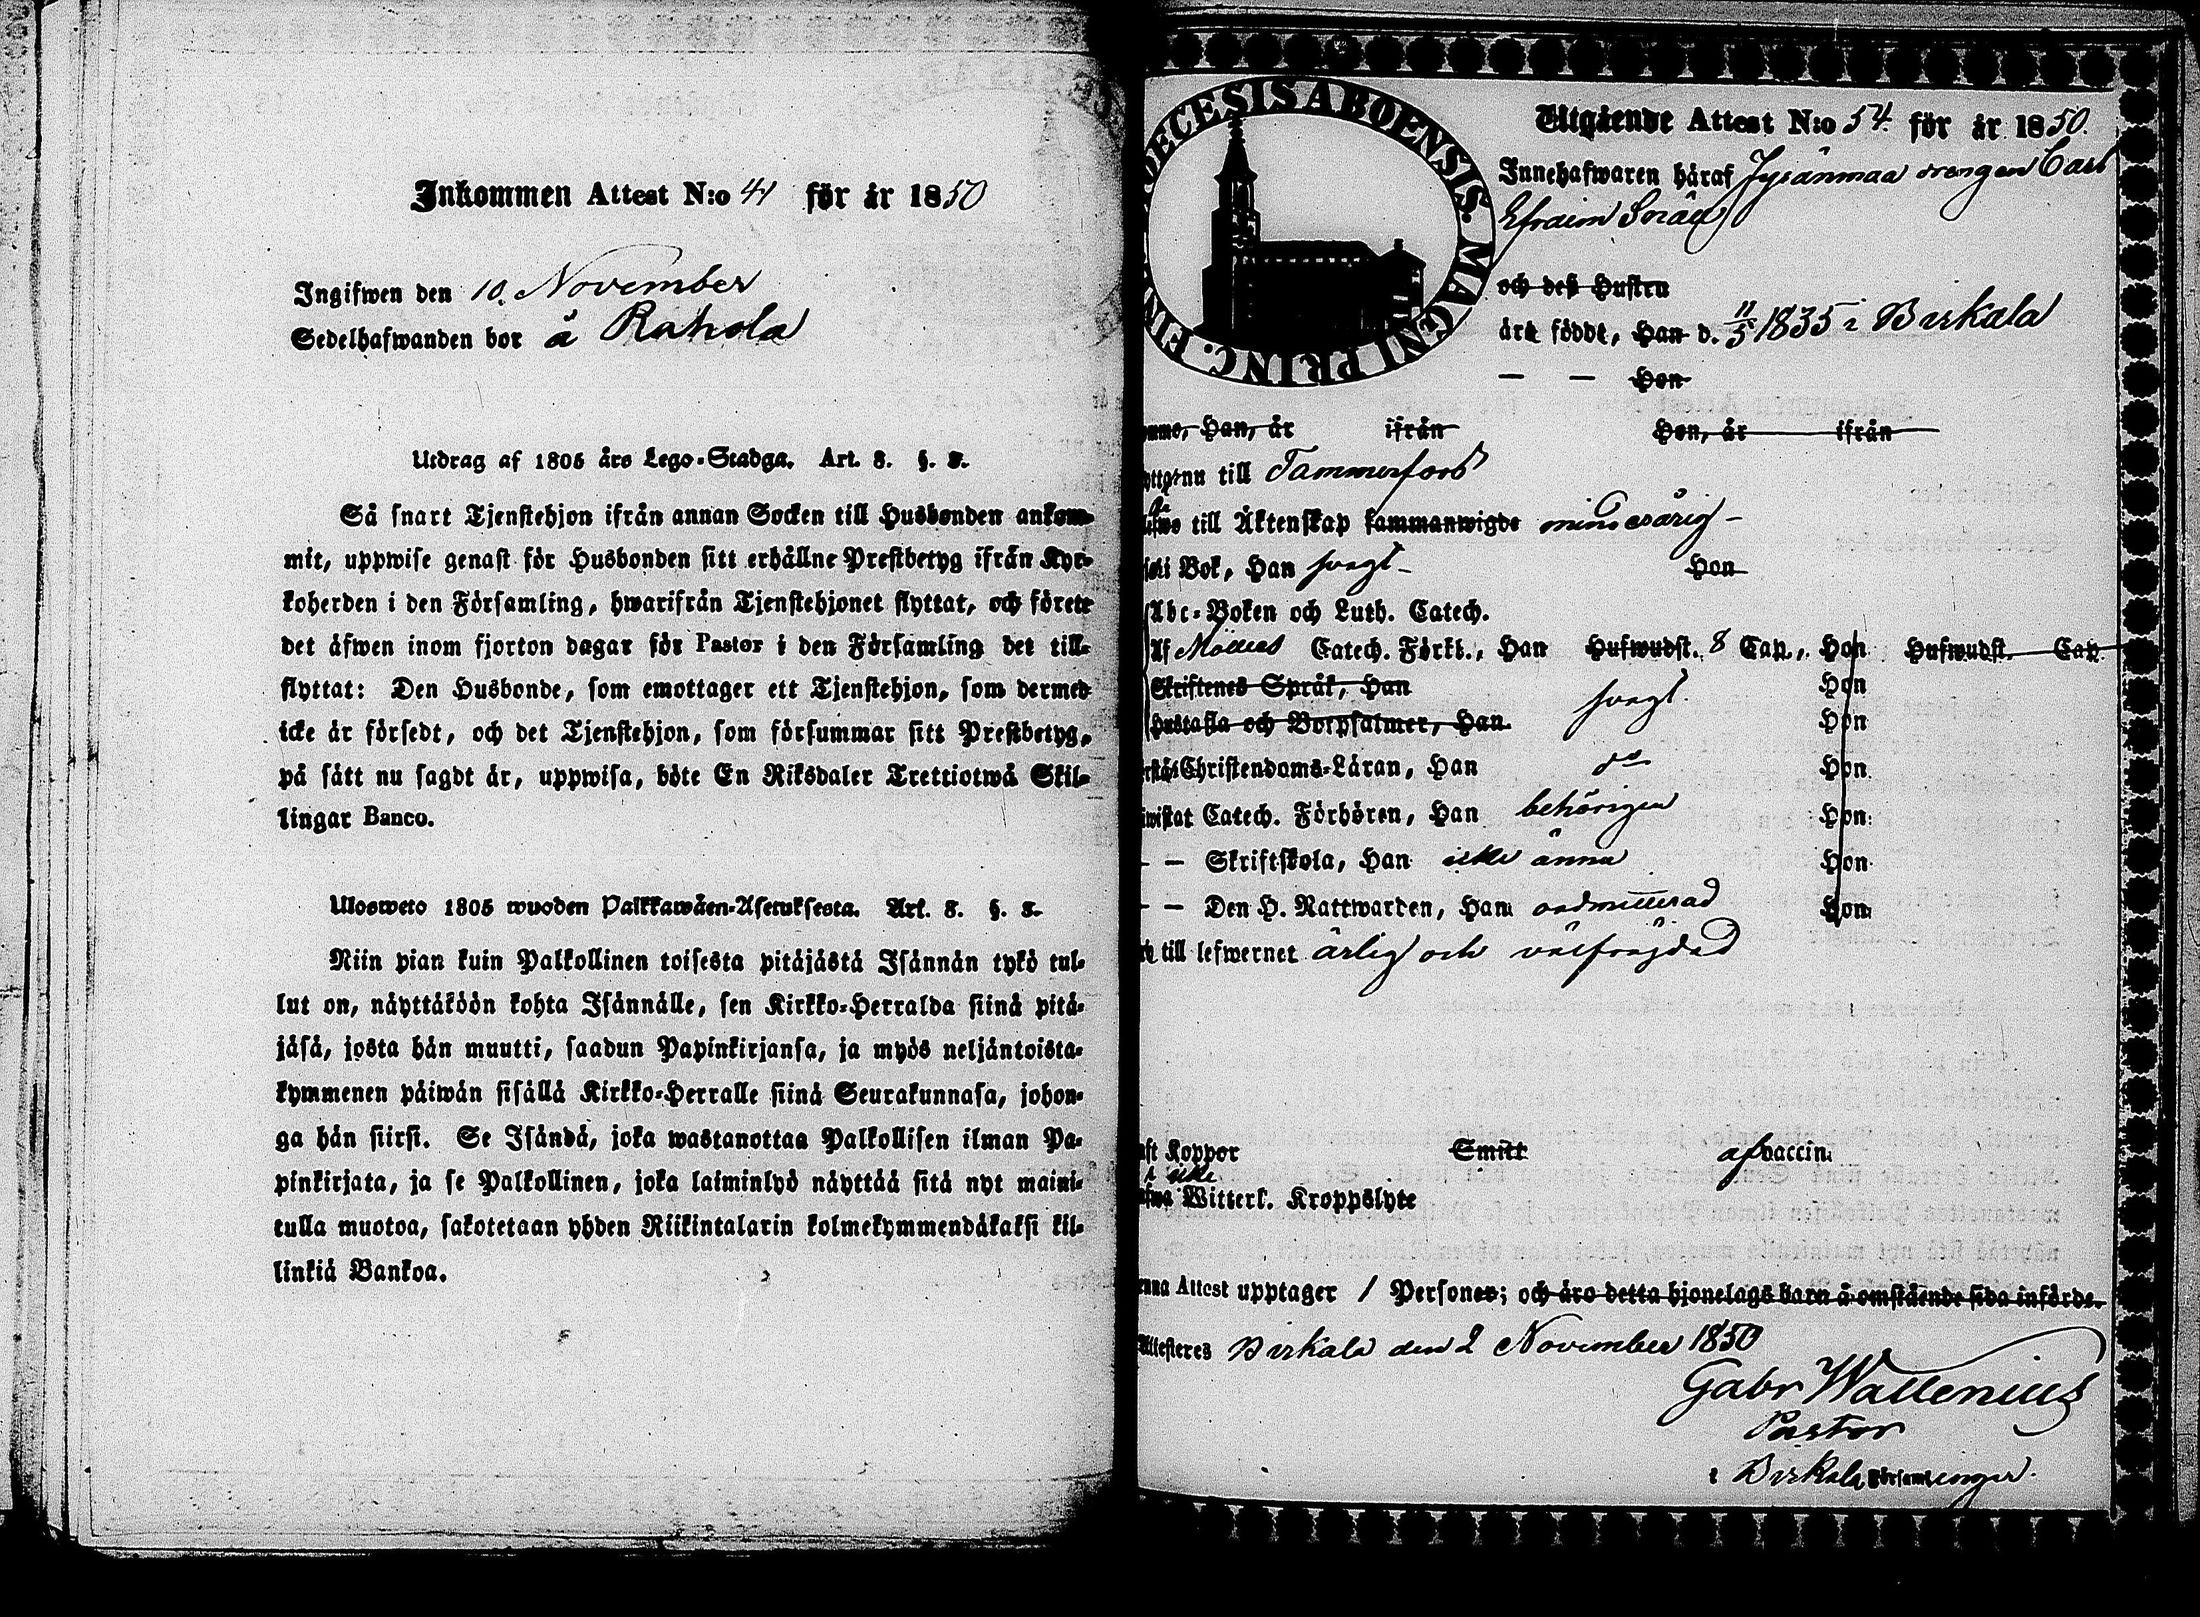 Inkommen Attest N:o 41 för år 1850
Ingifwen den 10. November
Sedelhafwanden bor å Rahola
Utdrag af 1805 års Lego-Stadga. Art. 8. §. 8.
Så snart Tjenstehjon ifrån annan Socken till Husbonden ankom-
mit, uppwise genast för Husbonden sitt erhållne Prestbetyg ifrån Kyr-
koherden i den Församling, hwarifrån Tjenstehjonet flyttat, och förete
det äfwen inom fjorton dagar för Pastor i den Församling det till-
flyttat: Den Husbonde, som emottager ett Tjenstehjon, som dermed
icke är försedt, och det Tjenstehjon, som försummar sitt Prestbetyg,
på sätt nu sagdt är, uppwisa, böte En Riksdaler Trettiotwå Skil-
lingar Banco.
Ulosweto 1805 wuoden Palkkawäen-Asetuksesta. Art. 8. §. 8.
Niin pian kuin Palkollinen toisesta pitäjästä Isännän tykö tul-
lut on, näyttäköön kohta Isännälle, sen Kirkko-Herralda siinä pitä-
jäsä, josta hän muutti, saadun Papinkirjansa, ja myös neljäntoista-
kymmenen päiwän sisällä Kirkko-Herralle siinä Seurakunnasa, johon-
ga hän siirsi. Se Isändä, joka wastanottaa Palkollisen ilman Pa-
pinkirjata, ja se Palkollinen, joka laiminlyö näyttää sitä nyt maini-
tulla muotoa, sakotetaan yhden Riikintalarin kolmekymmendäkaksi kil-
linkiä Bankoa.
DECESIS ABOENSIS. MAGNI PRINC. FIN
Utgående Attest N:o 54. för år 1850.
Innehafwaren häraf Jysänmaa drengen Carl
Efraim
och deß Hustru
äre födde, Han d. 11/5 1835 i Birkala
— — Hon
Han, är ifrån Hon, är ifrån
till Tammerfors
till Äktenskap sammanwigde minderårig –
Bok, Han svagt – Hon
Abc-Boken och Luth. Catech.
Af Möllers Catech. Förkl., Han Hufwudst. 8 Cap., Hon Hufwudst. Cap.
Skriftenes Språk, Han svagt. Hon
Hustafla och Botpsalmer, Han Hon
Christendoms-Läran, Han do Hon
Catech. Förhören, Han behörigen Hon
— — Skriftskola, Han icke ännu Hon
— — Den H. Nattwarden, Han oadmitterad Hon
till lefwernet ärlig och välfrägdad
Koppor Smitt af vaccin.
icke
Witterl. Kroppslyte
Attest upptager 1 Personer; och äro detta hjonelags barn å omstående sida införde.
Attesteres Birkala den 2 November 1850
Gabr Wallenius
Pastor
i Birkala Församlingar.